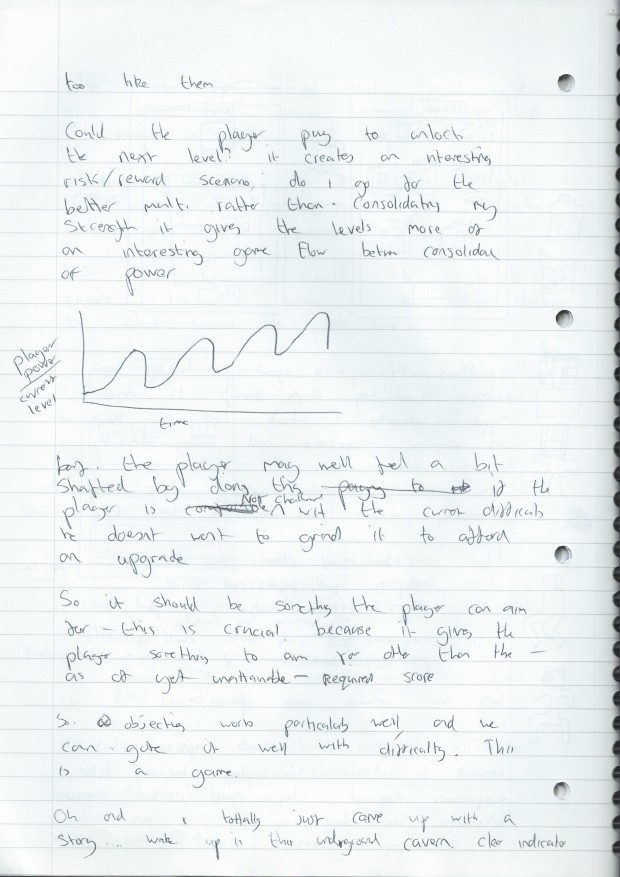 too like them
Could the player pay to unlock
the next level? it creates an interesting
risk/reward scenario, do I go for the
better mult. rather than consolidating my
Strength it gives the levels more of
an interesting game flow betwn consolidat
of power
player
power
current
level
time
the player may well feel a bit
Shafted by doing this paying to if the
player is Not challened with the curren difficulty
he doesnt want to grind it to afford
an upgrade
So it should be something the player can aim
for - this is crucial because it gives the
player something to aim for other than the -
as of yet unattainable - Required score
So. objecting works particularly well and we
can gate it well with difficulty. This
is a game.
Oh and I totally just came up with a
Story... wake up in this underground cavern. clear indicator